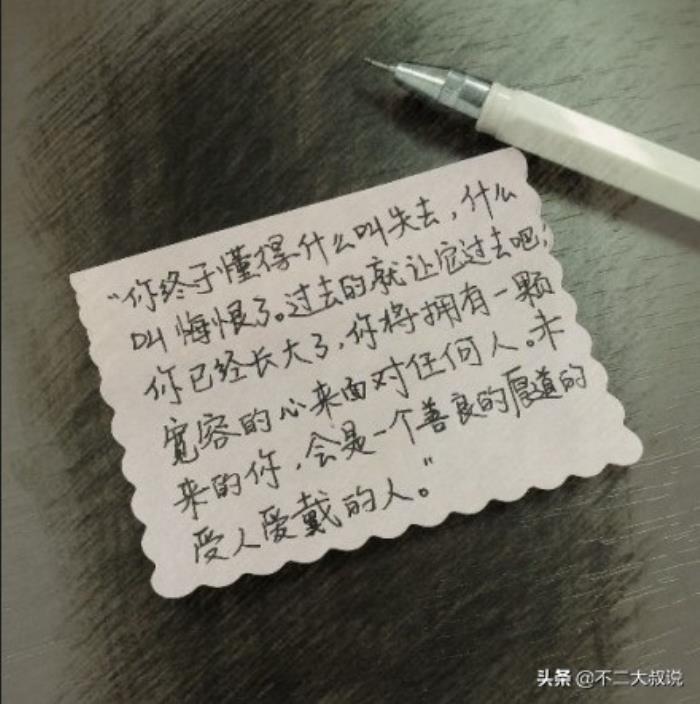 “你终于懂得什么叫失去，什么
叫悔恨了。过去的就让它过去吧；
你已经长大了，你将拥有一颗
宽容的心来面对任何人。未
来的你，会是一个善良的厚道的
受人爱戴的人。”
头条 @不二大叔说